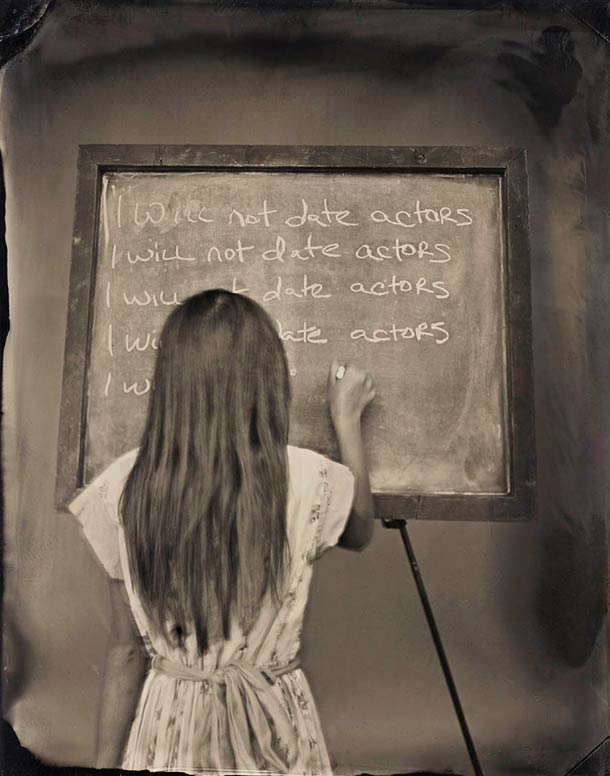 I will not date actors
I will not date actors
I will t date actors
I wi date actors
I w